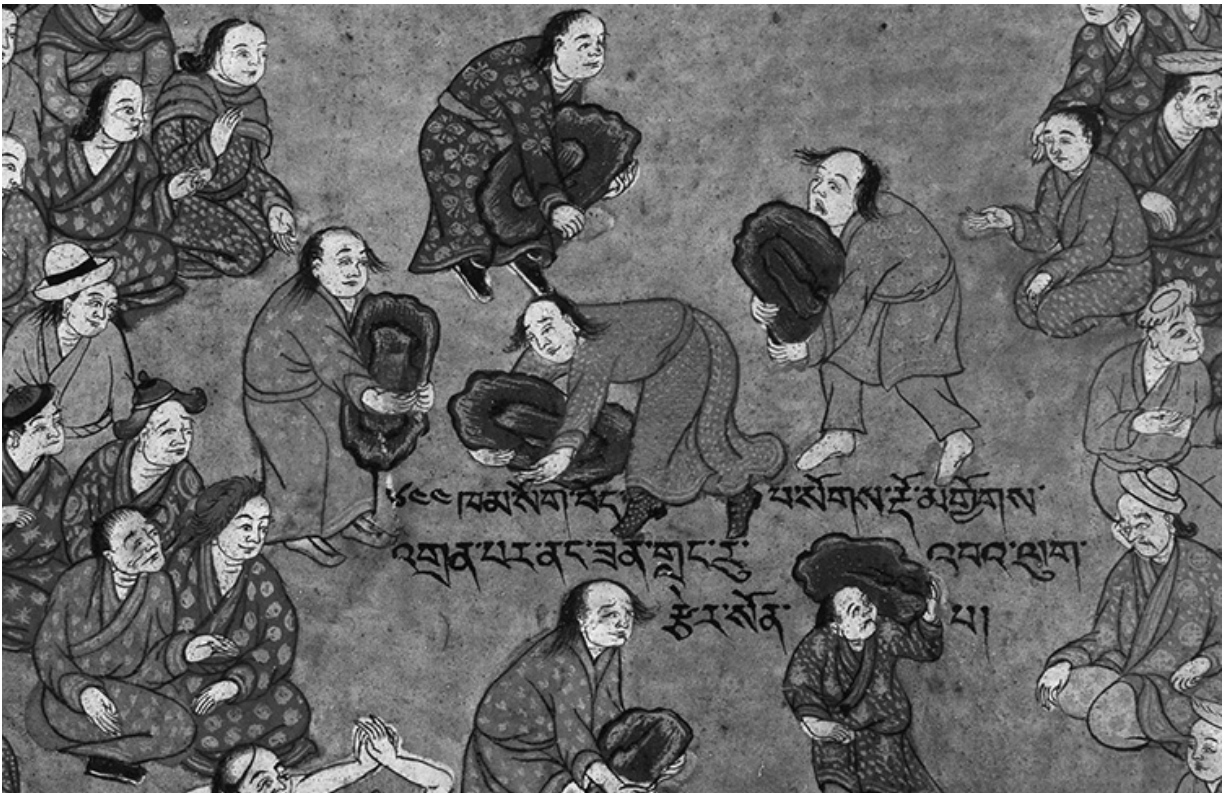 ཁམ་སོག་བོད་ པ་སོགས་རྡོ་མགྱོགས་
འགྲན་པར་ནང་ཟན་གླང་རུ་ འབའ་ལུག་
རྩེར་སོན་ པ།